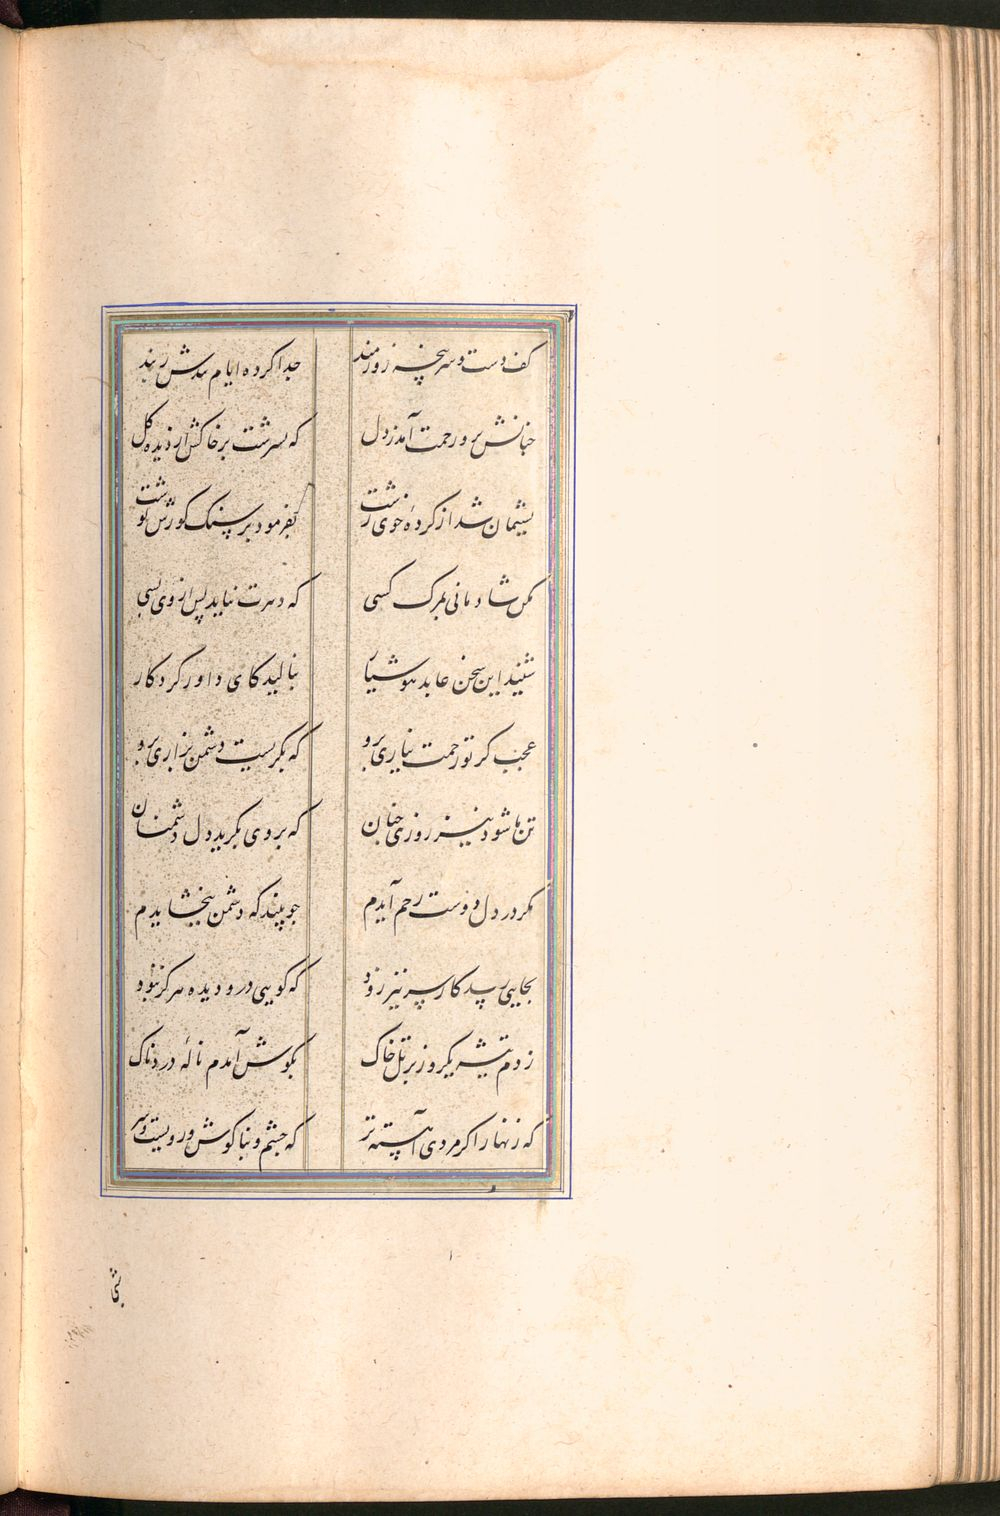 کف دست و سرپنجه زورمند جدا کرده ایام بندش ز بند
چنانش برو رحمت آمد ز دل که بسرشت بر خاکش از دیده گل
پشیمان شد از کرده خوی زشت بفرمود بر سنگ گورش نوشت
مکن شادمانی بمرگ کسی که دهرت نیاید پس از وی بسی
شنید این سخن عابد هوشیار بنالید کای داور کردکار
عجب کر تو رحمت نیاری برو که بگریست دشمن بزاری برو
تن ما شود نیز روزی چنان که بر وی بگرید دل دشمنان
مگر در دل دوست رحم آیدم چو بیند که دشمن ببخشایدم
بجایی رسد کار سر نیز زود که کویی درو دیده هرگز نبود
زدم تیشه یکروز بر تل خاک بگوش آمدم نالهٔ دردناک
که زنهار اکر مردی آهسته تر که چشم و بناگوش و رویست و سر